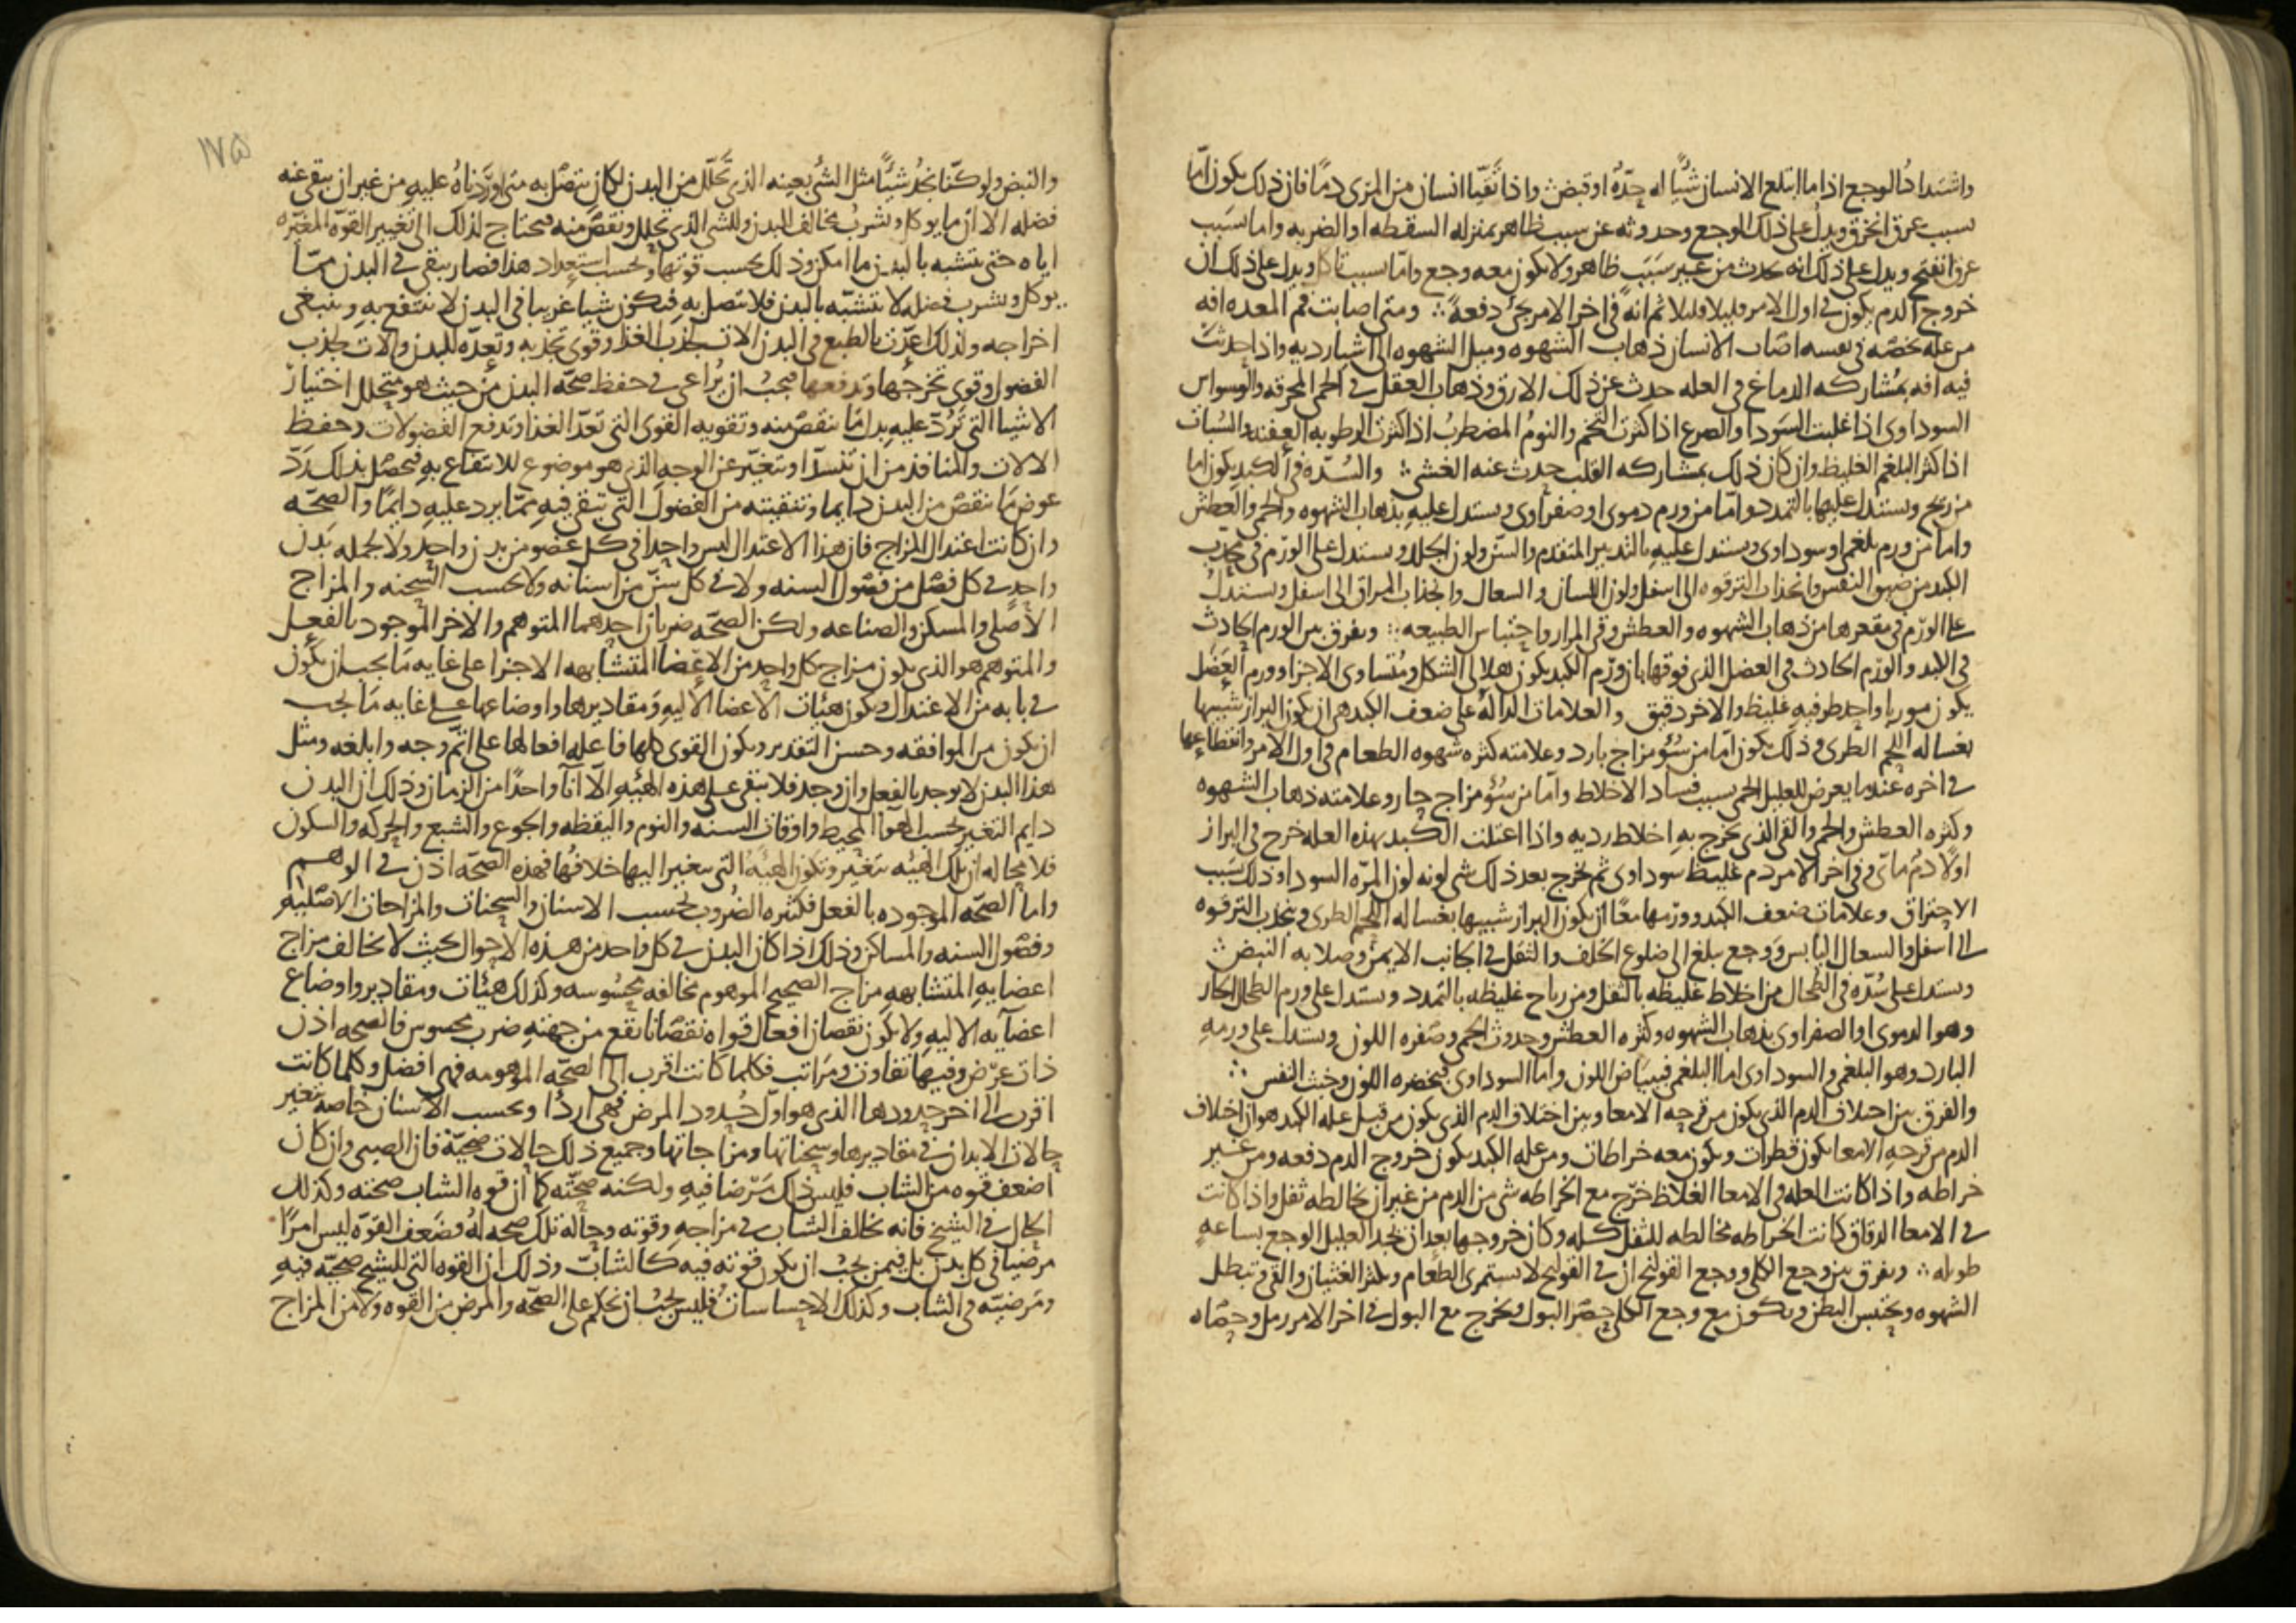 واشتداد الوجع اذا ما ابتلع الانسان شيًا له حدّه او قبض واذا تقيّا انسان من المرى دمًا فان ذلك يكون امّا
بسبب عرق انخرق ويدل على ذلك الوجع وحدوثه عن سبب ظاهر بمنزله السقطه او الضربه واما بسبب
عرق انفتح ويدل على ذلك انه يحدث من غير سبب ظاهر ولا يكون معه وجع وامّا بسبب تاكل ويدل على ذلك ان
خروج الدم يكون فى اول الامر قليلا قليلا ثم انه فى اخر الامر يجئ دفعةً ∴ ومتى اصابت فم المعده افه
من عله تخصّه فى نفسه اصاب الانسان ذهاب الشهوه وميل الشهوه الى اشيا رديه واذا حدثت
فيه افه بمشاركه الدماغ فى العله حدث عن ذلك الارق وذهاب العقل فى الحمى المحرقه والوسواس
السوداوى اذا غلبت السودا والصرع اذا كثرت التخم والنوم المضطرب اذا كثرت الرطوبه العفنه والسُبات
اذا كثر البلغم الغليظ وان كان ذلك بمشاركه القلب حدث عنه الغشى ∴ والسُدّه فى الكبد يكون اما
من ريح ويستدل عليها بالتمدد واما من ورم دموى او صفراوى ويستدل عليه بذهاب الشهوه والحمى والعطش
واما من ورم بلغمى او سوداوى ويستدل عليه بالتدبير المتقدم والسنّ ولون الجلد ويستدل على الورم فى حدب
الكبد من ضيق النفس وانجذاب الترقوه الى اسفل ولون اللسان والسعال وانجذاب المراق الى اسفل ويستدل
على الورم فى مقعرها من ذهاب الشهوه والعطش وقى المرار واحتباس الطبيعه ∴ ويفرق بين الورم الحادث
فى الكبد والورم الحادث فى العضل الذى فوقها بان ورم الكبد يكون هلالى الشكل ومتساوى الاجزا وورم العضل
يكون مورباً واحد طرفيه غليظ والاخر دقيق والعلامات الدالة على ضعف الكبد هى ان يكون البراز شبيها
بغساله اللحم الطرى وذلك يكون امّا من سُؤ مزاج بارد وعلامته كثره شهوه الطعام فى اول الامر وانقطاعها
فى اخره عندما يعرض للعليل الحمى بسبب فساد الاخلاط وامّا من سُؤ مزاج حار وعلامته ذهاب الشهوه
وكثره العطش والحمى والقى الذى يخرج به اخلاط رديه واذا اعتلت الكبد بهذه العله خرج فى البراز
اولًا دم مائى وفى اخر الامر دم غليظ سوداوى ثم يخرج بعد ذلك شى لونه لون المرّه السودا وذلك بسبب
الاحتراق وعلامات ضعف الكبد وورمها معًا ان يكون البراز شبيها بغساله اللحم الطرى وتنجذب الترقوه
الى اسفل والسعال اليابس ووجع يبلغ الى اضلوع الخلف والثقل فى الجانب الايمن وصلابه النبض
ويستدل على سُدّه فى الطحال من اخلاط غليظه بالثقل ومن رياح غليظه بالتمدد ويستدل على ورم الطحال الحار
وهو الدموى او الصفراوى بذهاب الشهوه وكثره العطش وحدوث الحمى وصفره اللون ويستدل على ورمه
البارد وهو البلغمى والسوداوى اما البلغمى فببياض اللون واما السوداوى فبخضره اللون وخبث النفس ∴
والفرق بين اختلاف الدم الذى يكون من قرحه الامعا وبين اختلاف الدم الذى يكون من قبل عله الكبد هو ان اختلاف
الدم من قرحه الامعا يكون قطرات ويكون معه خراطات ومن عله الكبد يكون خروج الدم دفعه ومن غير
خراطه واذا كانت العله فى الامعا الغلاظ خرج مع الخراطه شى من الدم من غير ان يخالطه ثفل واذا كانت
فى الامعا الدقاق كانت الخراطه مخالطه للثفل كله وكان خروجها بعد ان يجد العليل الوجع بساعه
طويله ∴ ويفرق بين وجع الكلى ووجع القولنج ان فى القولنج لا يستمرى الطعام ويكثر الغثيان والقى وتبطل
الشهوه ويحتبس البطن ويكون مع وجع الكلى حصر البول ويخرج مع البول فى اخر الامر رمل وحصاه
١٧٥
والنبض ولو كنّا نجد شيئًا مثل الشى بعينه الذى تحلّل من البدن لكان يتصل به متى اوردناه عليه من غير ان يبقى عنه
فضله الا ان ما يوكل ويشرب يخالف للبدن وللشى الذى يحلل ونقص منه فيحتاج لذلك الى تغيير القوه المغيّره
اياه حتى يتشبه بالبدن ما امكن وذلك بحسب قوتها وبحسب استعداد هذا فصار يبقى فى البدن ممّا
يوكل ويشرب فضله لا تتشبّه بالبدن فلا تتصل به فيكون شيا غريبا فى البدن لا ينتفع به وينبغى
اخراجه ولذلك اعدّت بالطبع فى البدن الات تجذب الغذا وقوى تجذبه وتعدّه للبدن والات تجذب
الفضول وقوى تخرجها وتدفعها فيجب ان يُراعى فى حفظ صحّه البدن من حيث هو متحلل اختيار
الاشيا التى تَرُدّ عليه بدل ما نقص منه وتقويه القوى التى تعدّ الغذا وتدفع الفضولات وحفظ
الالات والمنافذ من ان تنسدّ او تتغيّر عن الوجه الذى هو موضوع للانتفاع به فيحصل بذلك ردّ
عوض ما نقص من البدن دايما وتنقيته من الفضول التى تبقى فيه ممّا يرد عليه دايمًا والصحّه
وان كانت اعتدال المزاج فان هذا الاعتدال ليس واحدا فى كل عضو من بدن واحد ولا لجمله بدن
واحدٍ فى كل فصل من فصول السنه ولا فى كل سنّ من اسنانه ولا بحسب السحنه والمزاج
الاصلى والمسكن والصناعه ولكن الصحّه ضربان احدهما المتوهم والاخر الموجود بالفعل
والمتوهم هو الذى يكون مزاج كل واحد من الاعضا المتشابهه الاجزا على غايه ما يجب ان يكون
فى بابه من الاعتدال ويكون هيئات الاعضا الاليه ومقاديرها واوضاعها على غايه ما يجب
ان يكون من الموافقه وحسن التقدير ويكون القوى كلها فاعله افعالها على اتمّ وجه وابلغه ومثل
هذا البدن لا يوجد بالفعل وان وجد فلا يبقى على هذه الهيّه الّا آنًا واحدًا من الزمان وذلك ان البدن
دايم التغير بحسب الهوا المحيط واوقات السنه والنوم واليقظه والجوع والشبع والحركه والسكون
فلا محاله ان تلك الهيئه تتغير وتكون الهيئه التى يتغير اليها خلافها فهذه الصحّه اذن فى الوهم
واما الصحّه الموجوده بالفعل فكثيره الضروب بحسب الاسنان والسحنات والمزاجات الاصليه
وفصول السنه والمساكن وذلك اذا كان البدن فى كل واحد من هذه الاحوال بحيث لا يخالف مزاج
اعضايه المتشابهه مزاج الصحيح الموهوم مخالفه محسوسه وكذلك هيئات ومقادير واوضاع
اعضآيه الاليه ولا يكون نقصان افعال قواه نقصانا يقع من جهته ضرب محسوس فالصحه اذن
ذات عرض وفيها تفاوت ومراتب فكلما كانت اقرب الى الصحّه الموهومه فهى افضل وكلما كانت
اقرب الى اخر حدودها الذى هو اوّل حدود المرض فهى اردأ وبحسب الاسنان خاصه تتغير
حالات الابدان فى مقاديرها وسحناتها ومزاجاتها وجميع ذلك حالات صحيّه فان الصبى وان كان
اضعف قوه من الشاب فليس ذلك مرضا فيه ولكنه صحّته كما ان قوه الشاب صحته وكذلك
الحال فى الشيخ فانه يخالف الشاب فى مزاجه وقوته وحاله تلك صحه له وضعف القوّه ليس امرًا
مرضيا فى كل بدن بل فيمن يجب ان يكون قوته فيه كالشابّ وذلك ان القوه التى للشيخ صحيّه فيه
ومرضيّه فى الشاب وكذلك الاحساسات فليس يجب ان يحكم على الصحّه والمرض من القوه ولا من المزاج